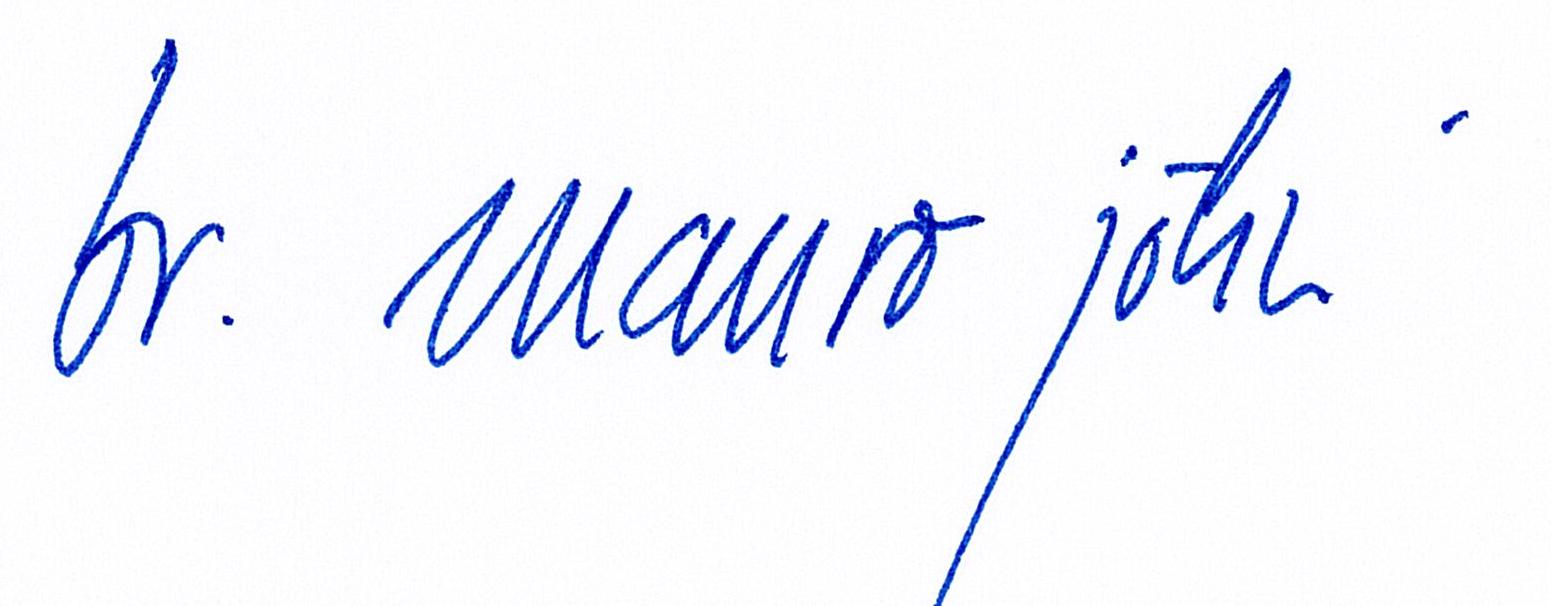 br. mauro jöhri